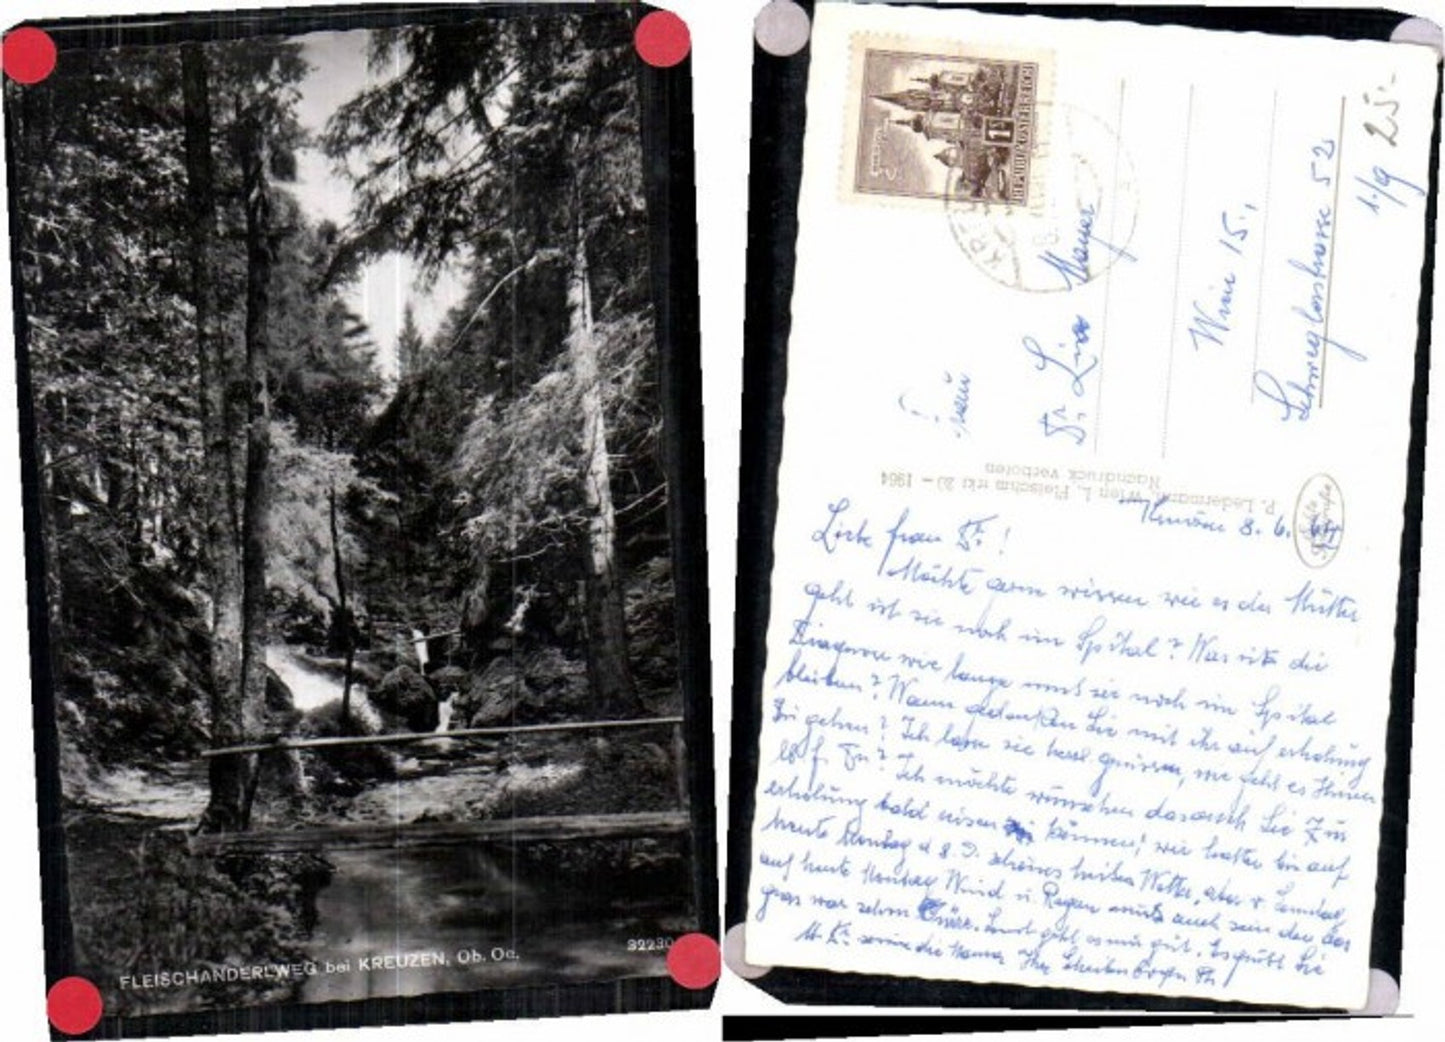 FLEISCHANDERLWEG bei KREUZEN, Ob. Oe.
32230
REPUBLIK ÖSTERREICH
1
25.-
1./9
Frau
Dr. Lisa Mayer
Wien 15.,
Schweglerstrasse 52
P. Ledermann, Wien I, Fleischmarkt 20 – 1964
Nachdruck verboten
Echte
Kreuzen 8. 6.
Liebe Frau Dr!
Möchte gern wissen wie es der Mutter
geht ist sie noch im Spital? Was ist die
Diagnose wie lange muß sie noch im Spital
bleiben? Wann gedenken Sie mit ihr auf erholung
zu gehen? Ich lasse sie herzl grüssen, wie geht es Ihnen
lb. f. Dr? Ich möchte wünschen das auch Sie zur
erholung bald reisen können! wir hatten bis auf
heute Montag d 8. schönes heißes Wetter, aber
auf heute Montag Wind u. Regen muß auch sein den das
gras war schon dürr. Sonst geht es mir gut. Es grüßt Sie
u. die Mama Ihre